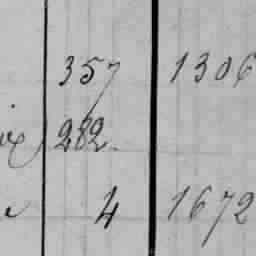 357 1306
282.
4 1672